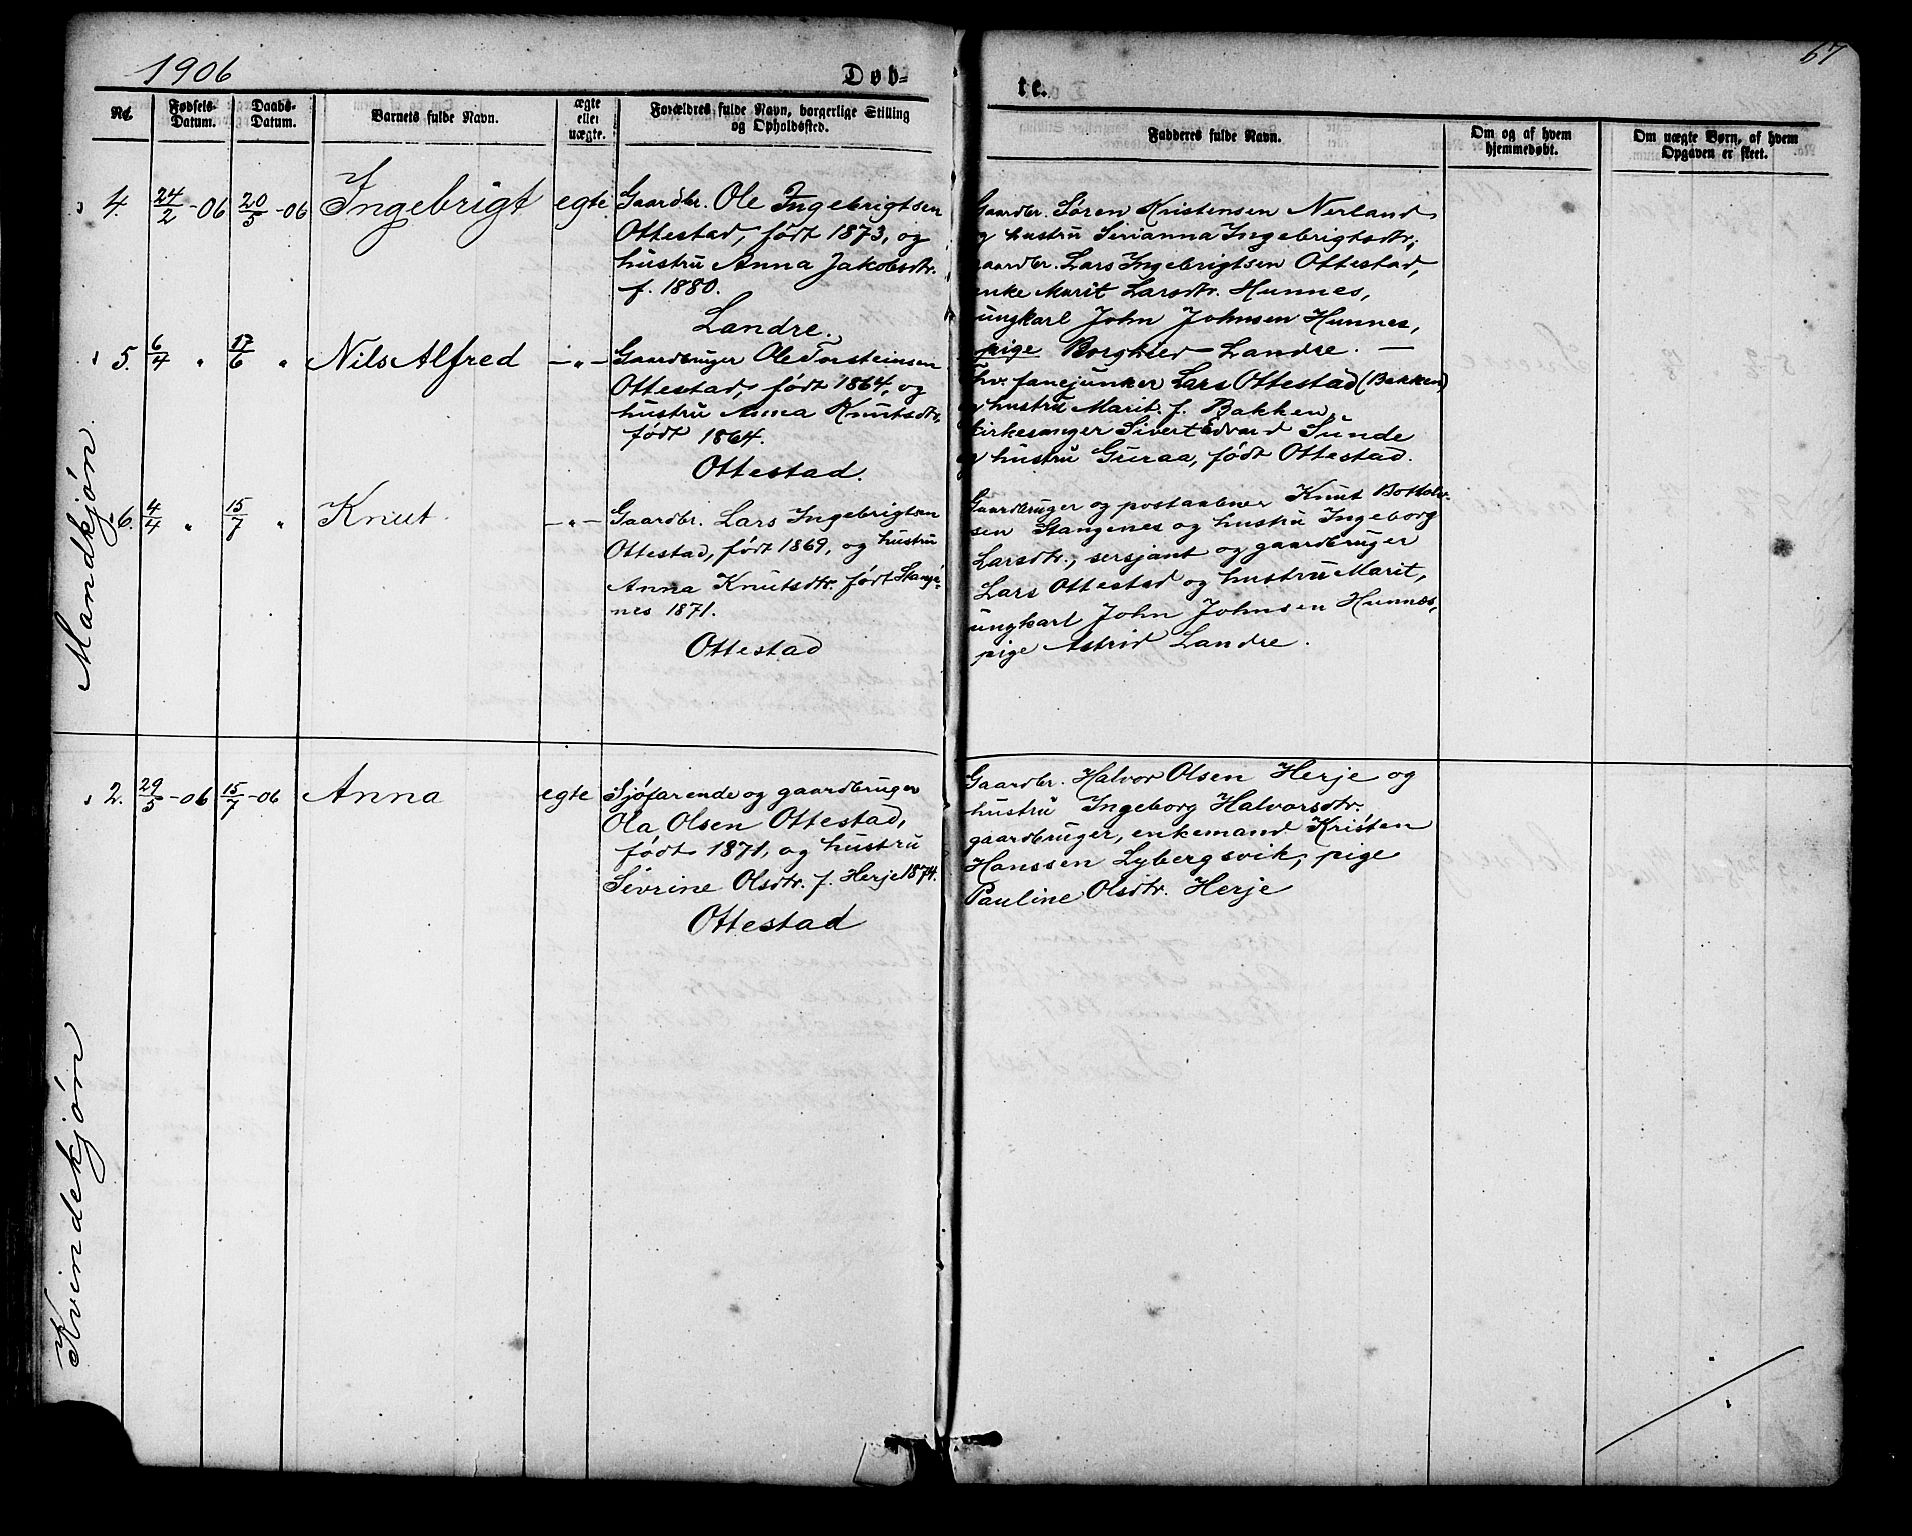 1906
Døb-
te.
67
No.
Fødsels-
Datum.
Daabs-
Datum.
Barnets fulde Navn.
ægte
eller
uægte.
Forældres fulde Navn, borgerlige Stilling
og Opholdssted.
Fadderes fulde Navn.
Om og af hvem
hjemmedøbt.
Om uægte Børn, af hvem
Opgaven er skeet.
Mandkjøn.
4. 24/2 -06 20/5 -06 Ingebrigt egte
Gaardbr. Ole Ingebrigtsen
Ottestad, født 1873, og
hustru Anna Jakobsdtr.
f. 1880.
Landre.
Gaardbr. Søren Kristensen Nerland
og hustru Serianna Ingebrigtsdtr.,
gaardbr. Lars Ingebrigtsen Ottestad,
enke Marit Larsdtr. Hunnes,
ungkarl John Johnsen Hunnes,
pige Borghild Landre. —
5. 6/4 " 17/6 " Nils Alfred —"—
Gaardbruger Ole Torsteinsen
Ottestad, født 1864, og
hustru Anna Knutsdtr.,
født 1864.
Ottestad.
fanejunker Lars Ottestad (Bakken)
og hustru Marit f. Bakken,
kirkesanger Sivert Edvard Sunde
og hustru Guraa, født Ottestad.
6. 4/4 " 15/7 " Knut —"—
Gaardbr. Lars Ingebrigtsen
Ottestad, født 1869, og hustru
Anna Knutsdtr. født Stange-
nes 1871.
Ottestad
Gaardbruger og postaabner Knut Bottolv-
sen Stangenes og hustru Ingeborg
Larsdtr., sersjant og gaardbruger
Lars Ottestad og hustru Marit,
ungkarl John Johnsen Hunnes,
pige Astrid Landre.
Kvindekjøn
2. 29/5 -06 15/7 -06 Anna egte
Sjøfarende og gaardbruger
Ola Olsen Ottestad,
født 1871, og hustru
Sevrine Olsdtr. f. Herje 1874.
Ottestad
Gaardbr. Halvor Olsen Herje og
hustru Ingeborg Halvorsdtr.
gaardbruger, enkemand Kristen
Hanssen Lybergsvik, pige
Pauline Olsdtr. Herje